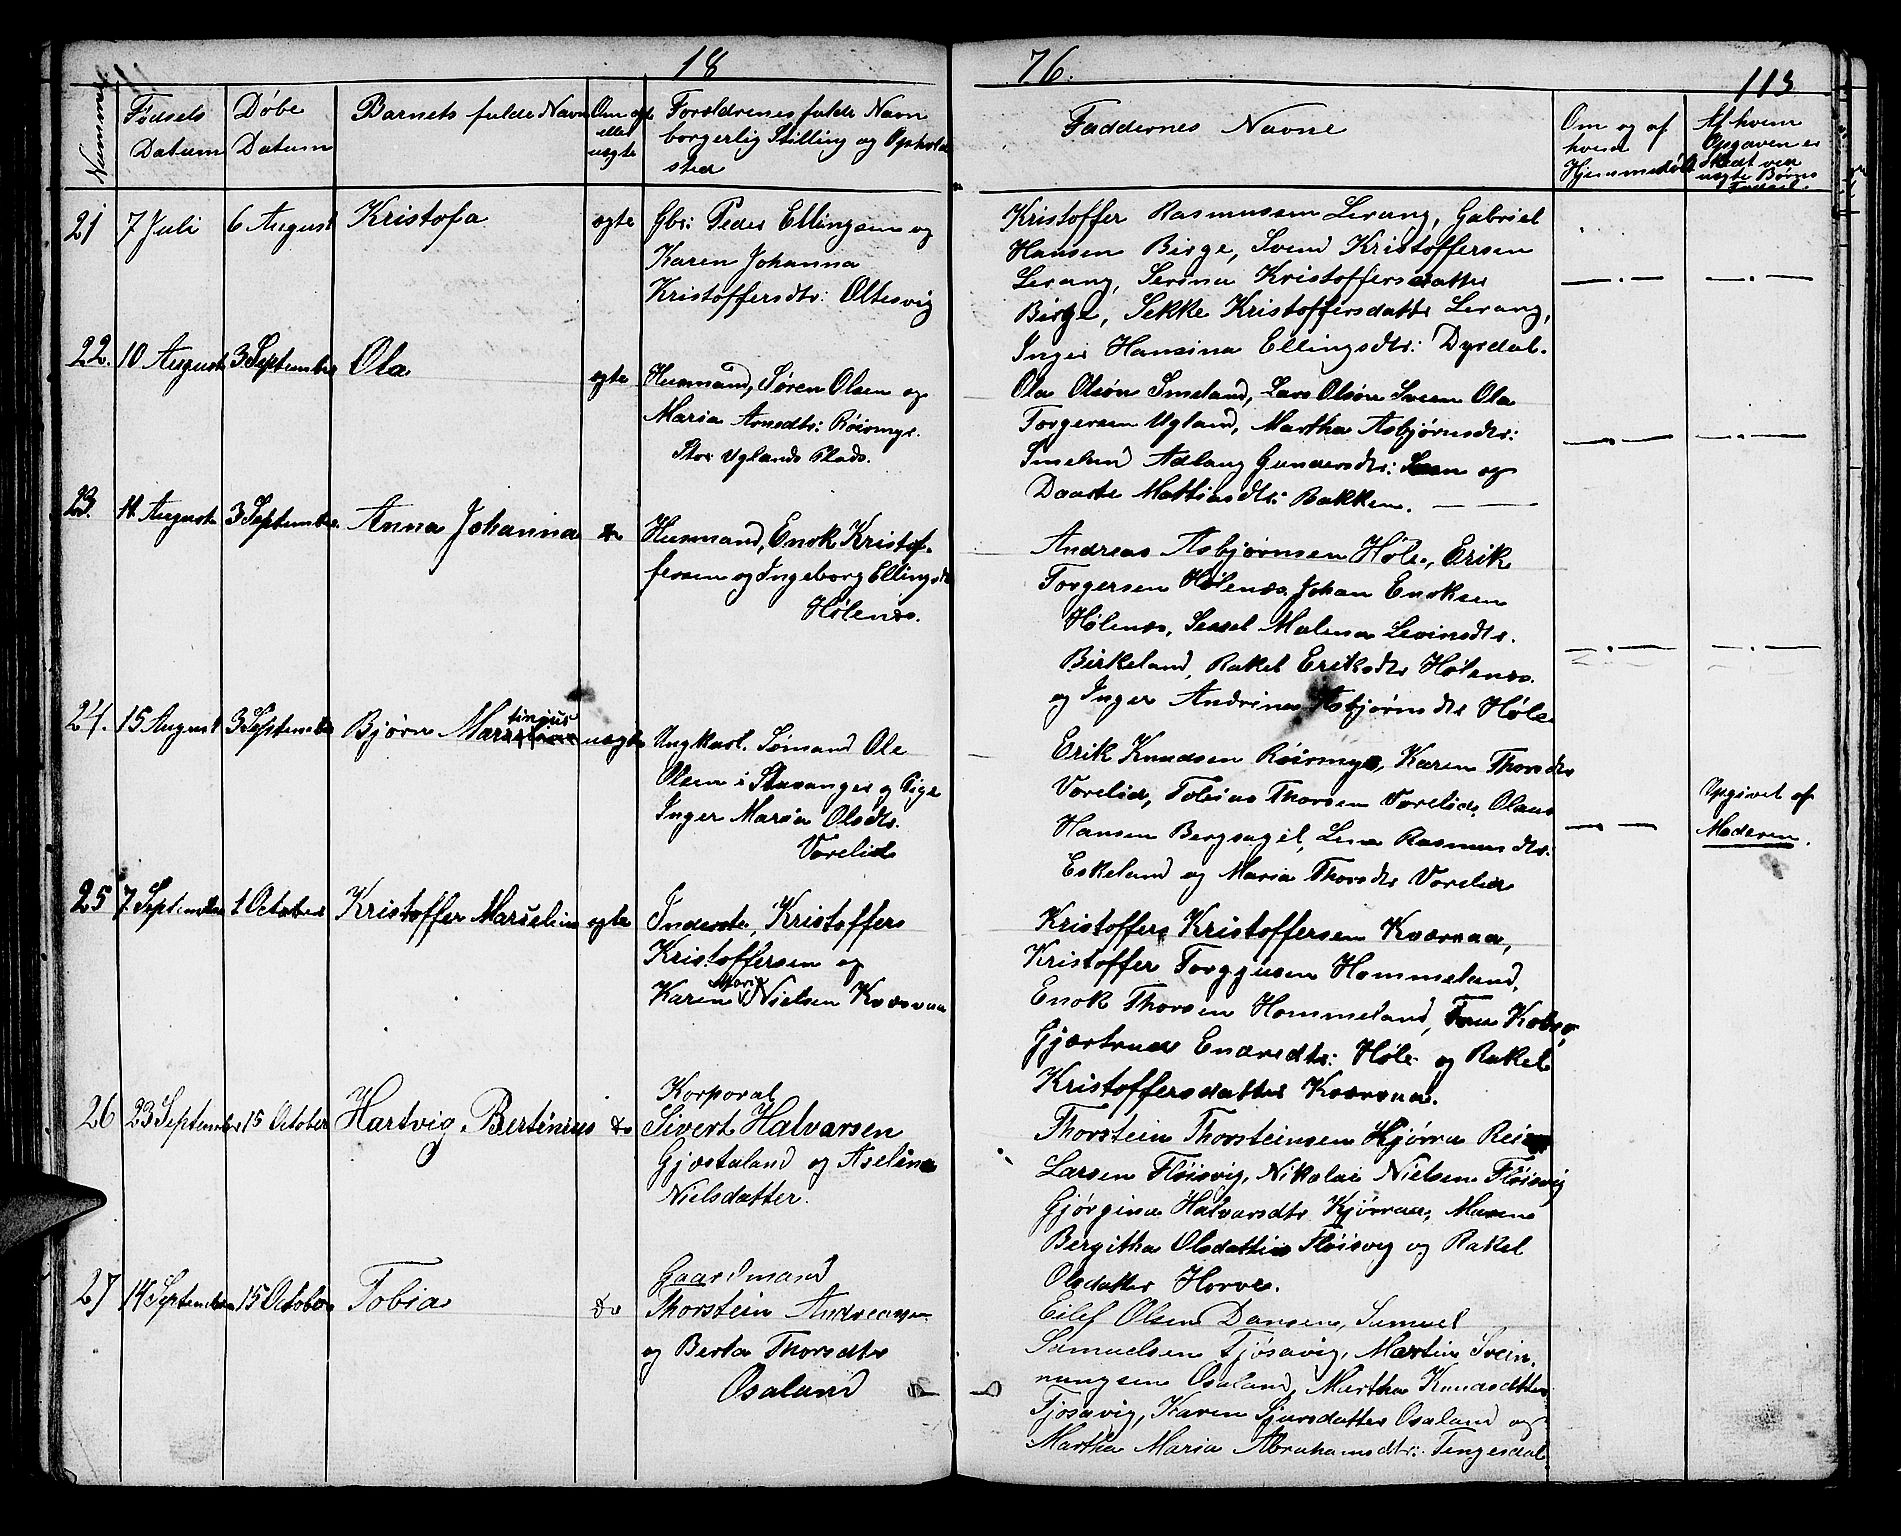 18 76.
113
Nummer
Fødsels Datum
Døbe Datum
Barnets fulde Navn
Om ægte eller uægte
Forældrenes fulde Navn
borgerlig Stilling og Opholds
sted
Faddernes Navne
Om og af
hvem
Hjemmedøbt
Af hvem
Opgaven er
skedt ved
uægte Børns
Fødsel
21 7 Juli 6 August Kristofa ægte
Gbr: Peder Ellingsen og
Karen Johanna
Kristoffersdtr: Oltesvig
Kristoffer Rasmussen Lerang, Gabriel
Hansen Birge, Svend Kristoffersen
Lerang, Serina Kristoffersdatter
Birge, Sekke Kristoffersdatter Lerang,
Inger Hansina Ellingsdtr: Dyrdal.
22. 10 August 3 September Ola ægte
Husmand, Søren Olsen og
Maria Arnsdtr: Röirmyr.
Stor Uglands Plads.
Ola Olsøn Imeland, Lars Olsøn Sveen Ola
Torgersen Ugland, Martha Asbjørnsdtr:
Imeland Adlaug Gundersdtr: og
Daarte Mattiasdtr: Bakken.
23. 11 August 3 September Anna Johanna do
Husmand, Enok Kristof-
fersen og Ingeborg Ellingsdtr
Hølenæs.
Andreas Asbjørnsen Høle, Erik
Torgersen Hølenæs, Johan Enoksen
Hølenæs, Sessel Malena Levinsdtr.
Birkeland, Rakel Eriksdtr Hølenæs.
og Inger Andrina Asbjørnsdtr Høle
24. 15 August 3 September Bjørn Martinius uægte
Ungkarl. Sømand Ole
Olsen i Stavanger og Pige
Inger Maria Olsdtr.
Vorelid
Erik Knudsen Röirmyr, Karen Thorsdtr
Vorelid, Tobias Thorsen Vorelid, Olaus
Hansen Bergsagel, Lina Rasmusdtr:
Eskeland og Maria Thorsdtr Vorelid
Opgivet af
Moderen.
25 7 September 1 October Kristoffer Marselius ægte
Inderste, Kristoffer
Kristoffersen og
Karen Marie Nielsen Kværnaa
Kristoffer Kristoffersen Kværnaa,
Kristoffer Torggusen Hommeland,
Enok Thorsen Hommeland, Kobro,
Gjærtrude Endredtr: Høle og Rakel
Kristoffersdatter Kværnaa.
26 23 September 15 October Hartvig Bertinius do
Korporal
Sivert Halvarsen
Gjæstaland og Aselina
Nielsdatter.
Thorstein Thorsteinsen Kjørra
Larsen Fløisvig, Nikolai Nielsen Fløisvig
Gjørgina Halvarsdtr Kjørraa, Maren
Bergitha Olsdatter Fløisvig og Rakel
Olsdatter Horve.
27 14 September 15 October Tobia do
Gaardmand
Thorstein Andreassen
og Berta Thorsdtr
Osaland
Eilef Olsen Dansen, Samuel
Samuelsen Tjøsavig, Martin Svein-
nungsen Osaland, Martha Knudsdatter
Tjøsavig, Karen Sjursdatter Osaland og
Martha Maria Abrahamsdtr: Tengesdal.